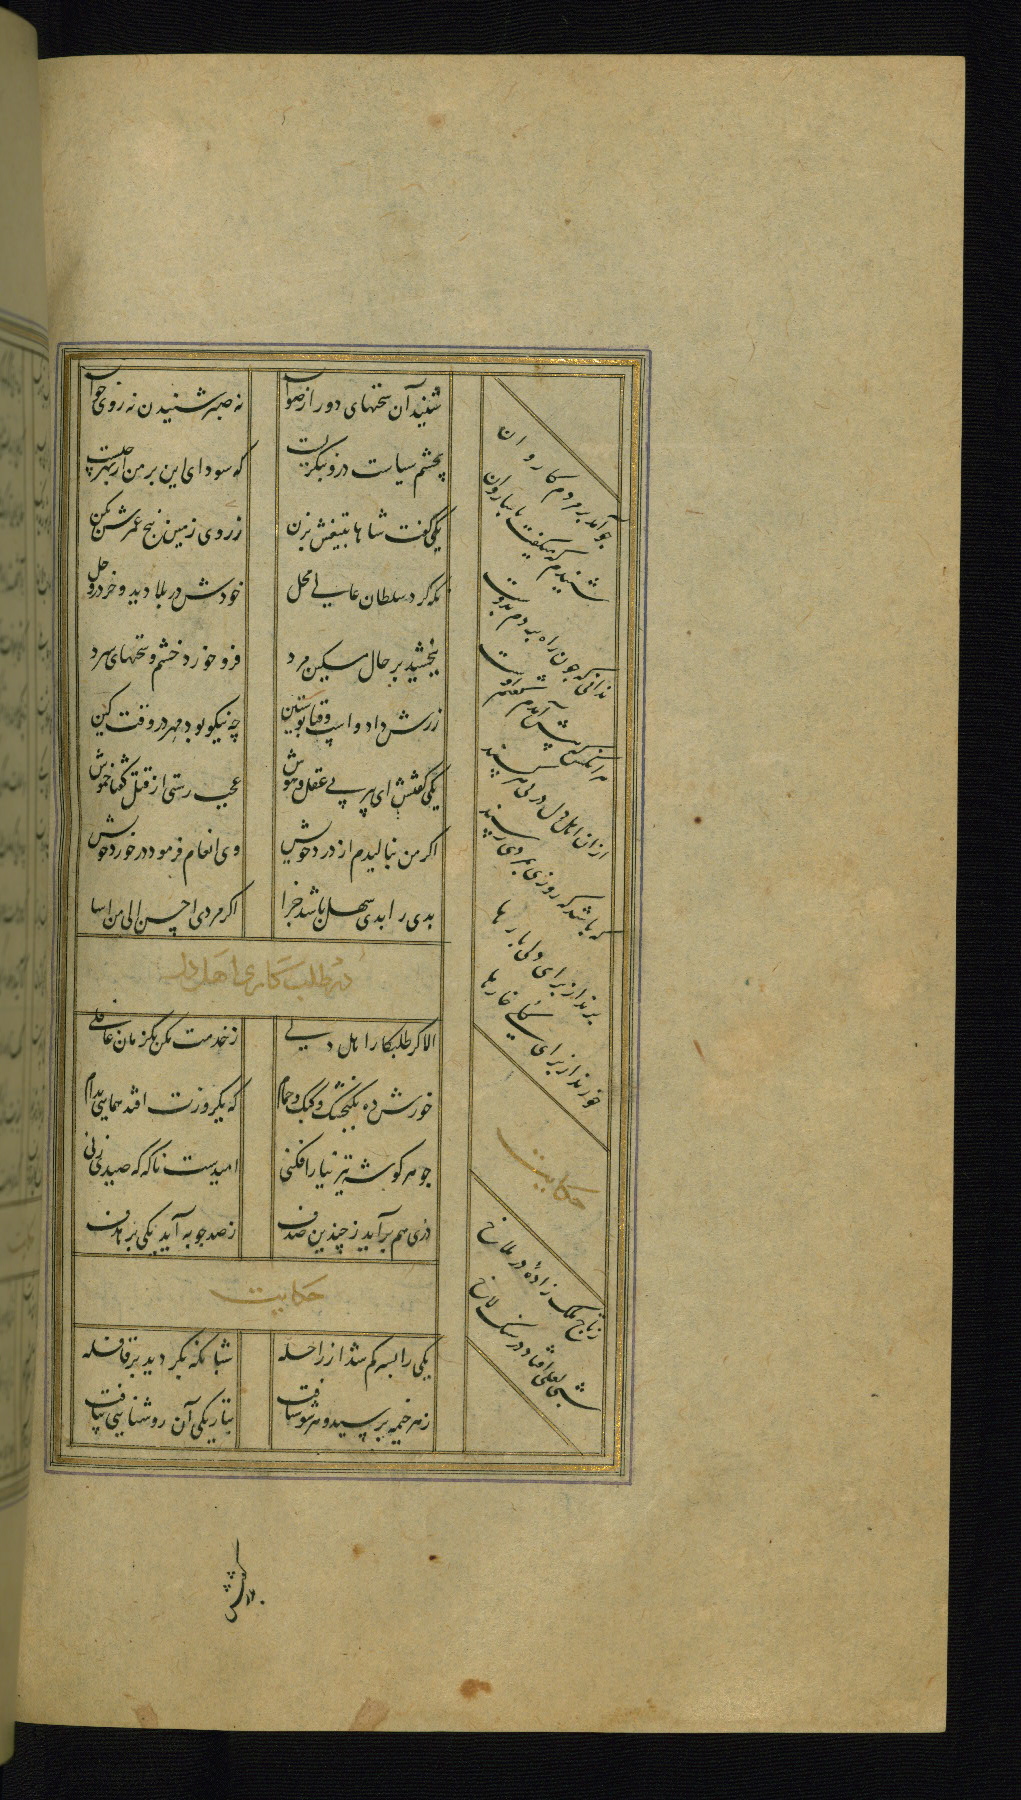 شنید آن سخنهای دور از صواب نه صبر شنیدن نه روی جواب
بچشم سیاست درو بنگریست که سودای این بر من از بهر چیست
یکی گفت شاها بتیغش بزن ز روی زمین بیخ عمرش بکن
نگه کرد سلطان عالی محل خودش در بلا دید و خر در وحل
ببخشید بر حال مسکین مرد فرو خورد خشم و سخنهای سرد
زرش داد و اسپ و قبا پوستین چه نیکو بود مهر در وقت کین
یکی گفتش ای پیر بی عقل و هوش عجب رستی از قتل گفتا خموش
اگر من بنالیدم از درد خویش وی انعام فرمود در خورد خویش
بدی را بدی سهل باشد جزا اگر مردی احسن الی من اسا
در طلب کاری اهل دل
الا گر طلبکار اهل دلی ز خدمت مکن یکزمان غافلی
خورش ده بکنجشک و کبک و حمام که یکروزت افتد همایی بدام
چو هر گوشه تیر نیاز افکنی امیدست ناگه که صیدی زنی
دری هم برآید ز چندین صدف ز صد چوبه آید یکی بر هدف
حکایت
یکی را پسر گم شد از راحله شبانگه بگردید در قافله
ز هر خیمه پرسید و هر سو شتافت بتاریکی آن روشنایی بیافت
چو آمد بر مردم کاروان
شنیدم که میگفت با ساروان
ندانی که چون راه بردم بدوست
هر آنکس که پیش آمدم گفتم اوست
از آن اهل دل در پی هر کسند
که باشد که روزی بمردی رسند
برند از برای دلی بارها
خورند از برای گلی خارها
حکایت
ز تاج ملک زاده در ملاخ
شبی لعلی افتاد در سنگ لاخ
پدر